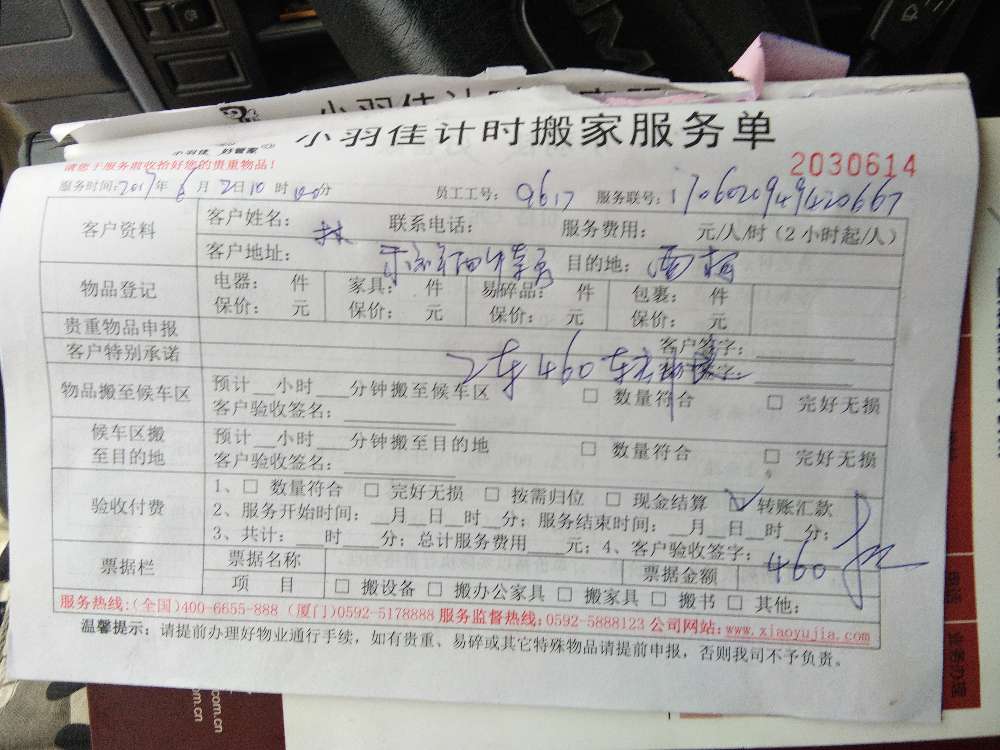 小羽佳计时搬家服务单
小羽佳 好管家
请您于服务前收拾好您的贵重物品！
2030614
服务时间：2017年6月2日10时00分 员工工号：9617 服务联号：1706020949420667
客户资料 客户姓名：林 联系电话： 服务费用： 元/人/时（2小时起/人）
客户地址： 目的地：
物品登记 电器： 件 家具： 件 易碎品： 件 包裹： 件
保价： 元 保价： 元 保价： 元 保价： 元
贵重物品申报 客户签字：
客户特别承诺 2车460车 字：
物品搬至候车区 预计__小时___分钟搬至候车区 □ 数量符合 □ 完好无损
客户验收签名：
候车区搬至目的地 预计__小时___分钟搬至目的地 □ 数量符合 □ 完好无损
客户验收签名：
验收付费 1、□ 数量符合 □ 完好无损 □ 按需归位 □ 现金结算 ☑ 转账汇款
2、服务开始时间：__月__日__时__分；服务结束时间：__月__日__时__分；
3、共计：___时___分；总计服务费用____元；4、客户验收签字：
票据栏 票据名称 票据金额 460
项 目 □ 搬设备 □ 搬办公家具 □ 搬家具 □ 搬书 □ 其他：
服务热线：(全国)400-6655-888 (厦门)0592-5178888 服务监督热线：0592-5888123 公司网站：www.xiaoyujia.com
温馨提示：请提前办理好物业通行手续，如有贵重、易碎或其它特殊物品请提前申报，否则我司不予负责。
.com.cn